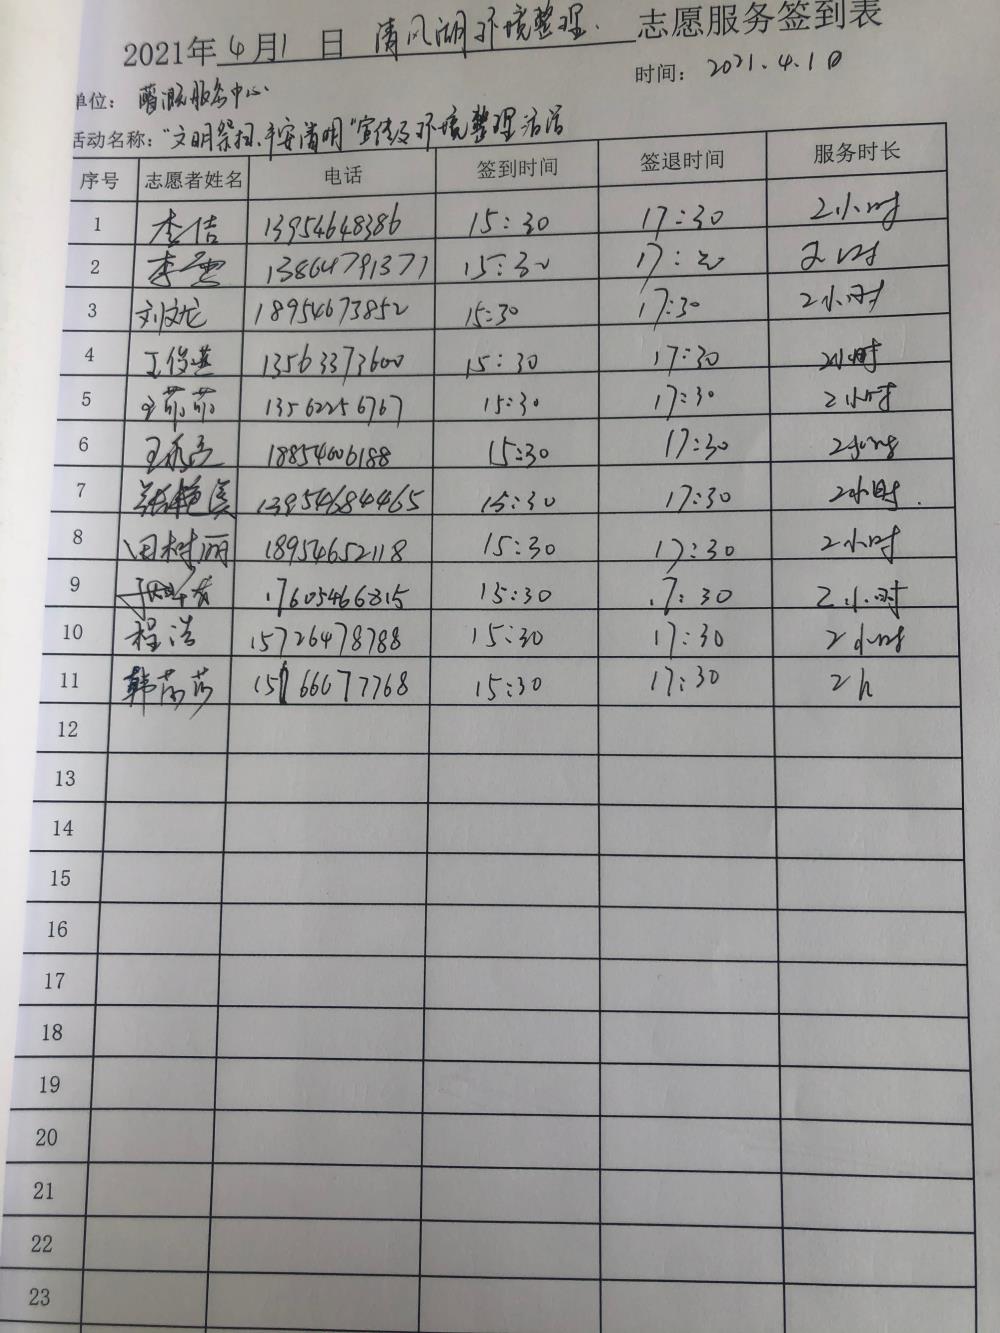 2021年4月1日 清风湖环境整理 志愿服务签到表
时间：2021.4.1日
单位：服务中心
活动名称："文明祭扫、平安清明"宣传及环境整理活动
序号 志愿者姓名 电话 签到时间 签退时间 服务时长
1 李洁 13954648386 15:30 17:30 2小时
2 李雪 13864791371 15:30 17:30 2小时
3 刘文龙 18954673852 15:30 17:30 2小时
4 王俊 13563373600 15:30 17:30 2小时
5 王茹茹 13562256767 15:30 17:30 2小时
6 王 18854006188 15:30 17:30 2小时
7 张艳 13954684465 15:30 17:30 2小时.
8 田树丽 18954652118 15:30 17:30 2小时
9 17605466815 15:30 17:30 2小时
10 程浩 15726478788 15:30 17:30 2小时
11 韩莎莎 15166677768 15:30 17:30 2h
12
13
14
15
16
17
18
19
20
21
22
23